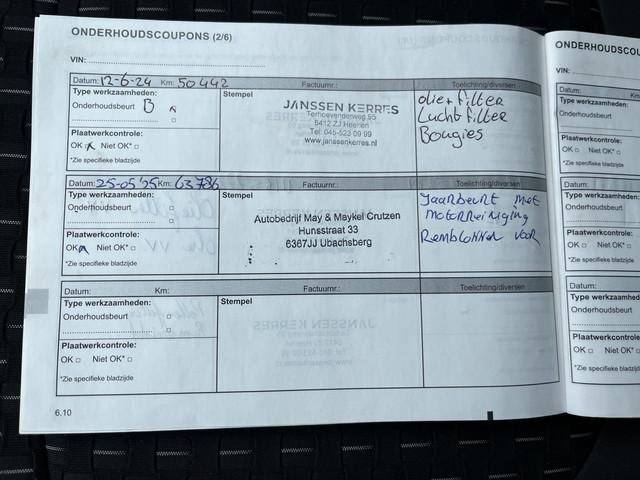 ONDERHOUDSCOUPONS (2/6)
VIN:
Datum: 12-6-24 Km: 50442 Factuurnr.: Toelichting/diversen
Type werkzaamheden:
Onderhoudsbeurt B
Plaatwerkcontrole:
OK Niet OK*
*Zie specifieke bladzijde
Stempel
JANSSEN KERRES
Terhoevenderweg 95
6412 ZJ Heerlen
Tel: 045-523 09 99
www.janssenkerres.nl
olie+filter
Luchtfilter
Bougies
Datum: 25-05'25 Km: 63786 Factuurnr.: Toelichting/diversen
Type werkzaamheden:
Onderhoudsbeurt
Plaatwerkcontrole:
OK Niet OK*
*Zie specifieke bladzijde
Stempel
Autobedrijf May & Maykel Crutzen
Hunsstraat 33
6367JJ Ubachsberg
Jaarbeurt met
motorreiniging
Remblokken voor
Datum: Km: Factuurnr.: Toelichting/diversen
Type werkzaamheden:
Onderhoudsbeurt
Plaatwerkcontrole:
OK Niet OK*
*Zie specifieke bladzijde
Stempel
6.10
ONDERHOUDSCOU
VIN:
Datum: Km
Type werkzaamheden
Onderhoudsbeurt
Plaatwerkcontrole:
OK Niet OK*
*Zie specifieke bladzijde
Datum:
Type werkzaamhed
Onderhoudsbeurt
Plaatwerkcontrole:
OK Niet OK*
*Zie specifieke bladzijd
Datum:
Type werkzaamhe
Onderhoudsbeurt
Plaatwerkcontrole
OK Niet OK*
*Zie specifieke bladz